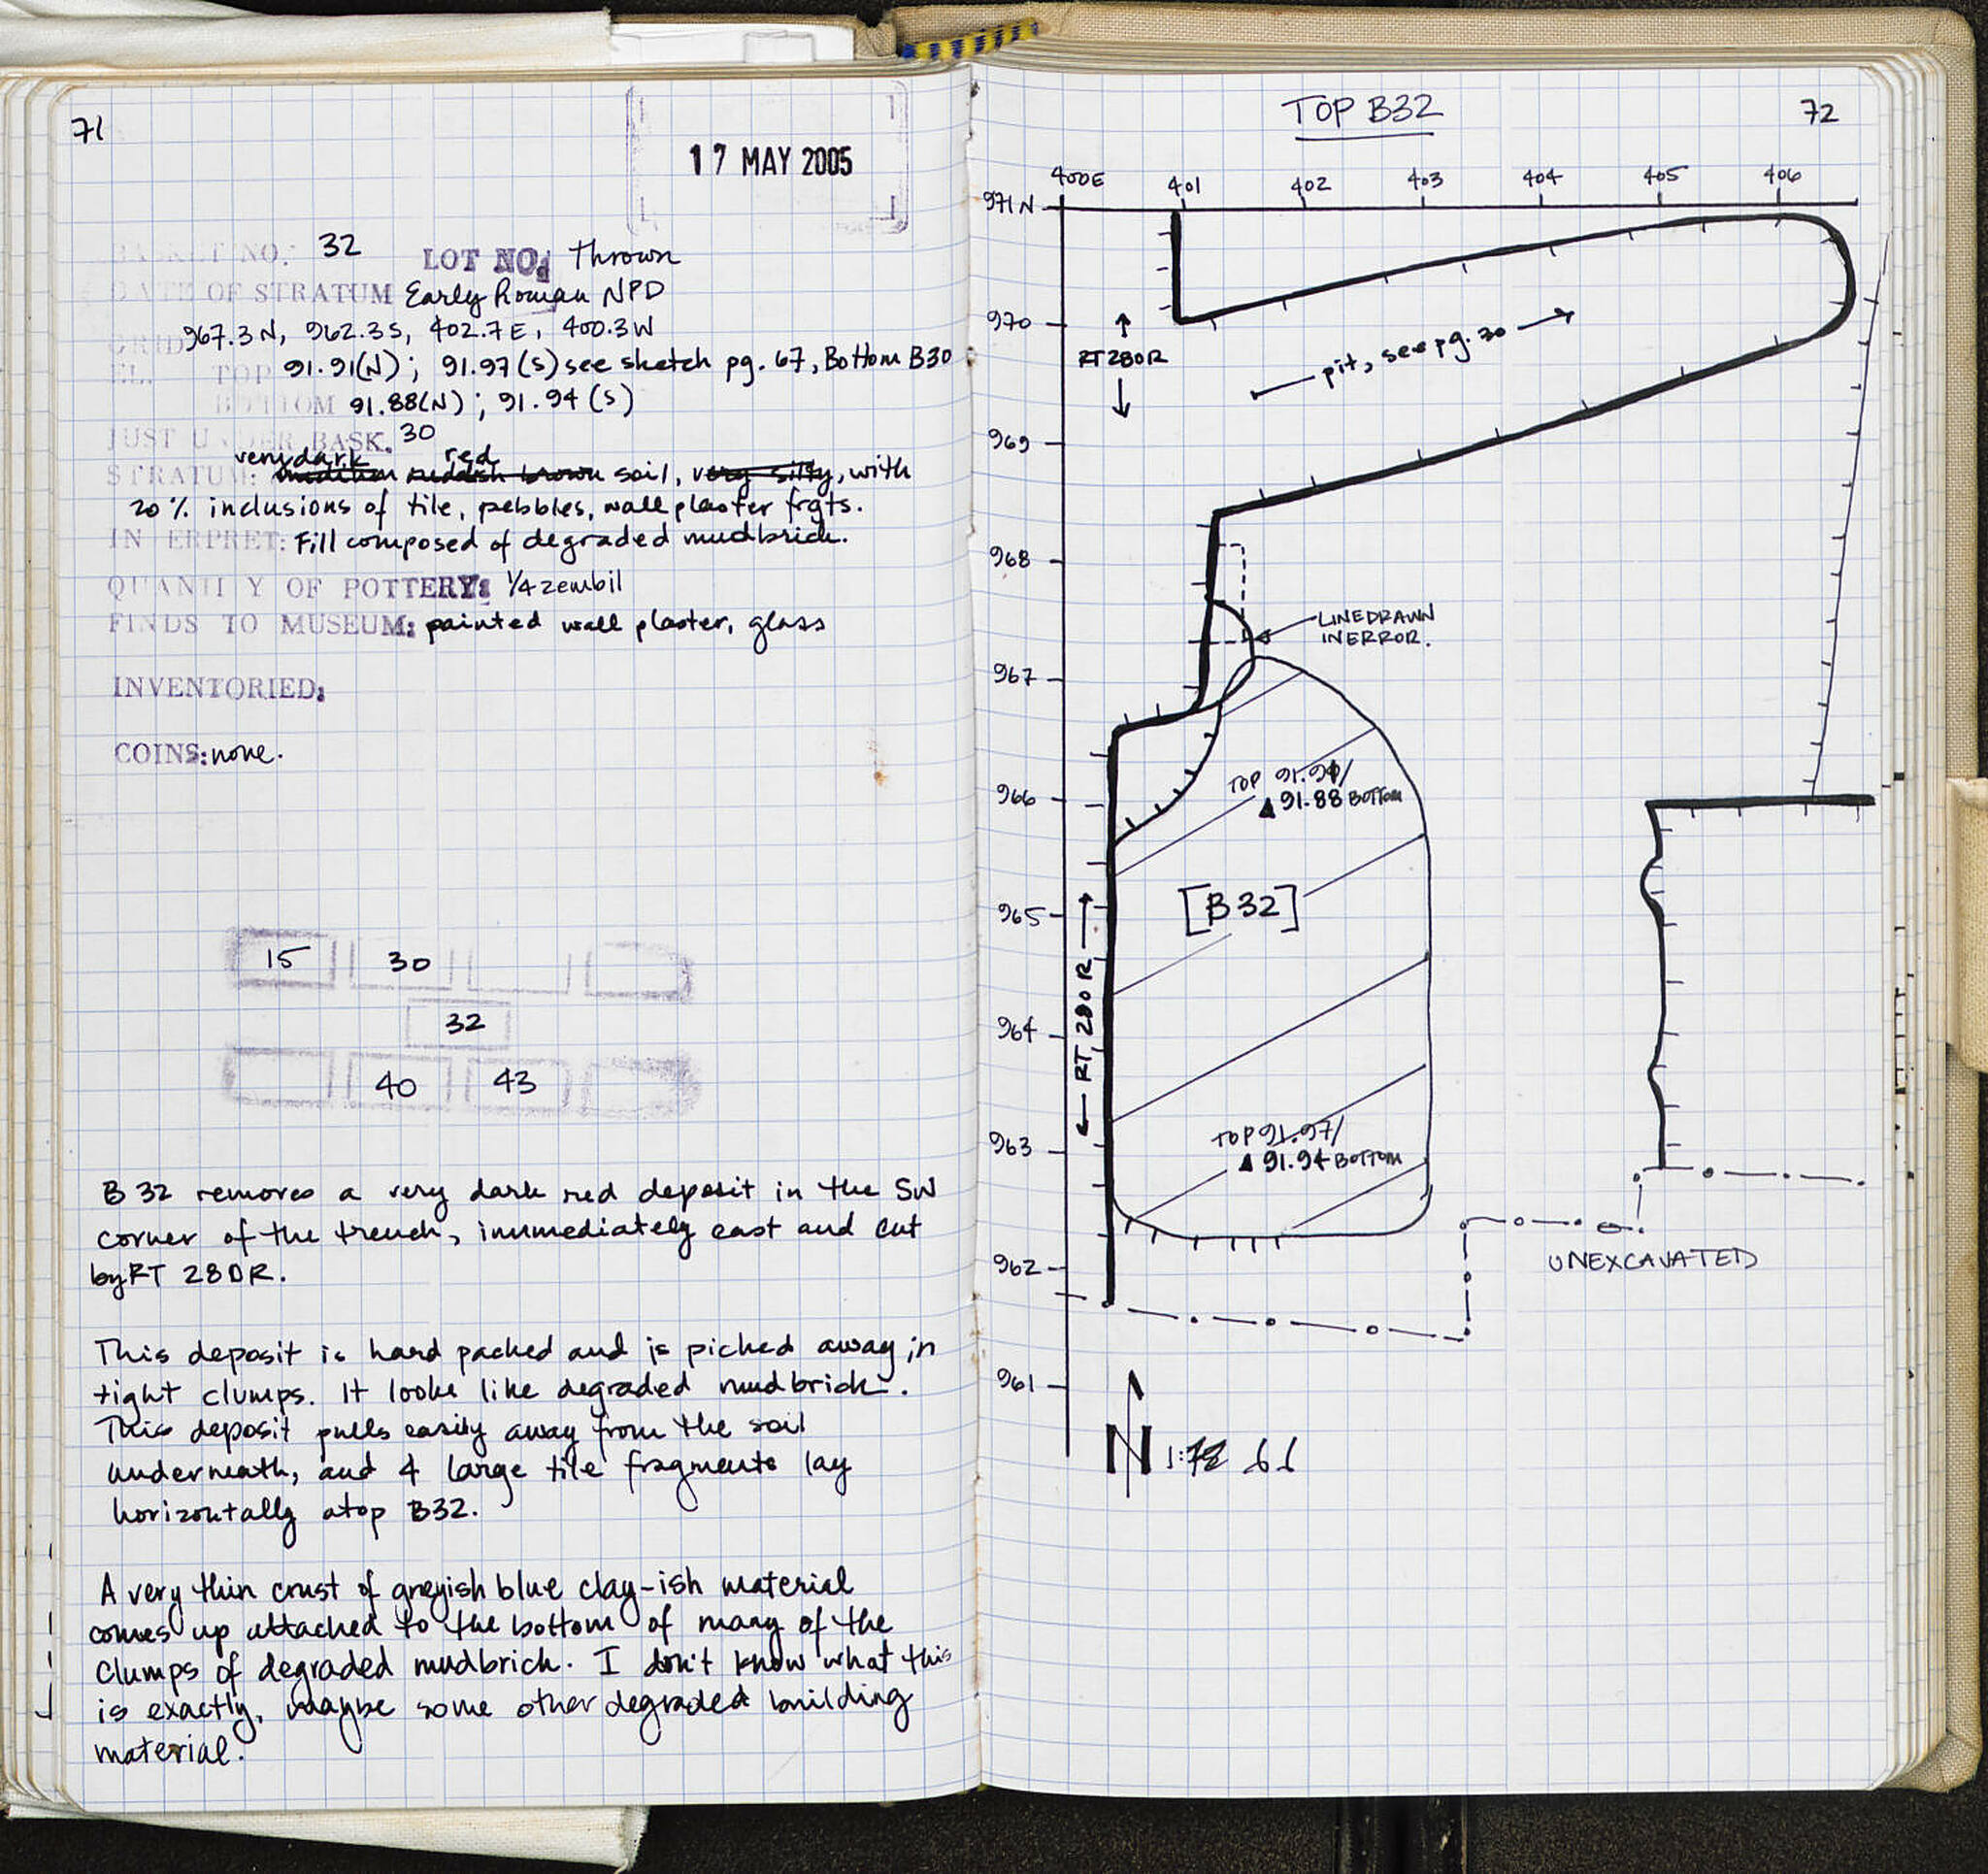 71
17 MAY 2005
BASKET NO: 32 LOT NO: Thrown
DATE OF STRATUM Early Roman NPD
GRID 967.3N, 962.3S, 402.7E, 400.3W
EL. TOP 91.91(N); 91.97(S) see sketch pg. 67, Bottom B30
BOTTOM 91.88(N); 91.94(S)
JUST UNDER BASK. 30
very dark red
STRATUM: medium reddish brown soil, very silty, with
20% inclusions of tile, pebbles, wall plaster frgts.
IN ERPRET: Fill composed of degraded mudbrick.
QUANTITY OF POTTERY: 1/4 zembil
FINDS TO MUSEUM: painted wall plaster, glass
INVENTORIED:
COINS: none.
15 30
32
40 43
B 32 removes a very dark red deposit in the SW
corner of the trench, immediately east and cut
by RT 280R.
This deposit is hard packed and is picked away in
tight clumps. It looks like degraded mudbrick.
This deposit pulls easily away from the soil
underneath, and 4 large tile fragments lay
horizontally atop B32.
A very thin crust of greyish blue clay-ish material
comes up attached to the bottom of many of the
clumps of degraded mudbrick. I don't know what this
is exactly, maybe some other degraded building
material.
TOP B32
72
400E 401 402 403 404 405 406
971N
970
RT 280R
pit, see pg. 30
969
968
LINE DRAWN
IN ERROR.
967
TOP 91.91/
966
91.88 BOTTOM
[B32]
965
RT 280R
964
TOP 91.97/
963
91.94 BOTTOM
962
UNEXCAVATED
961
N 1:72 66